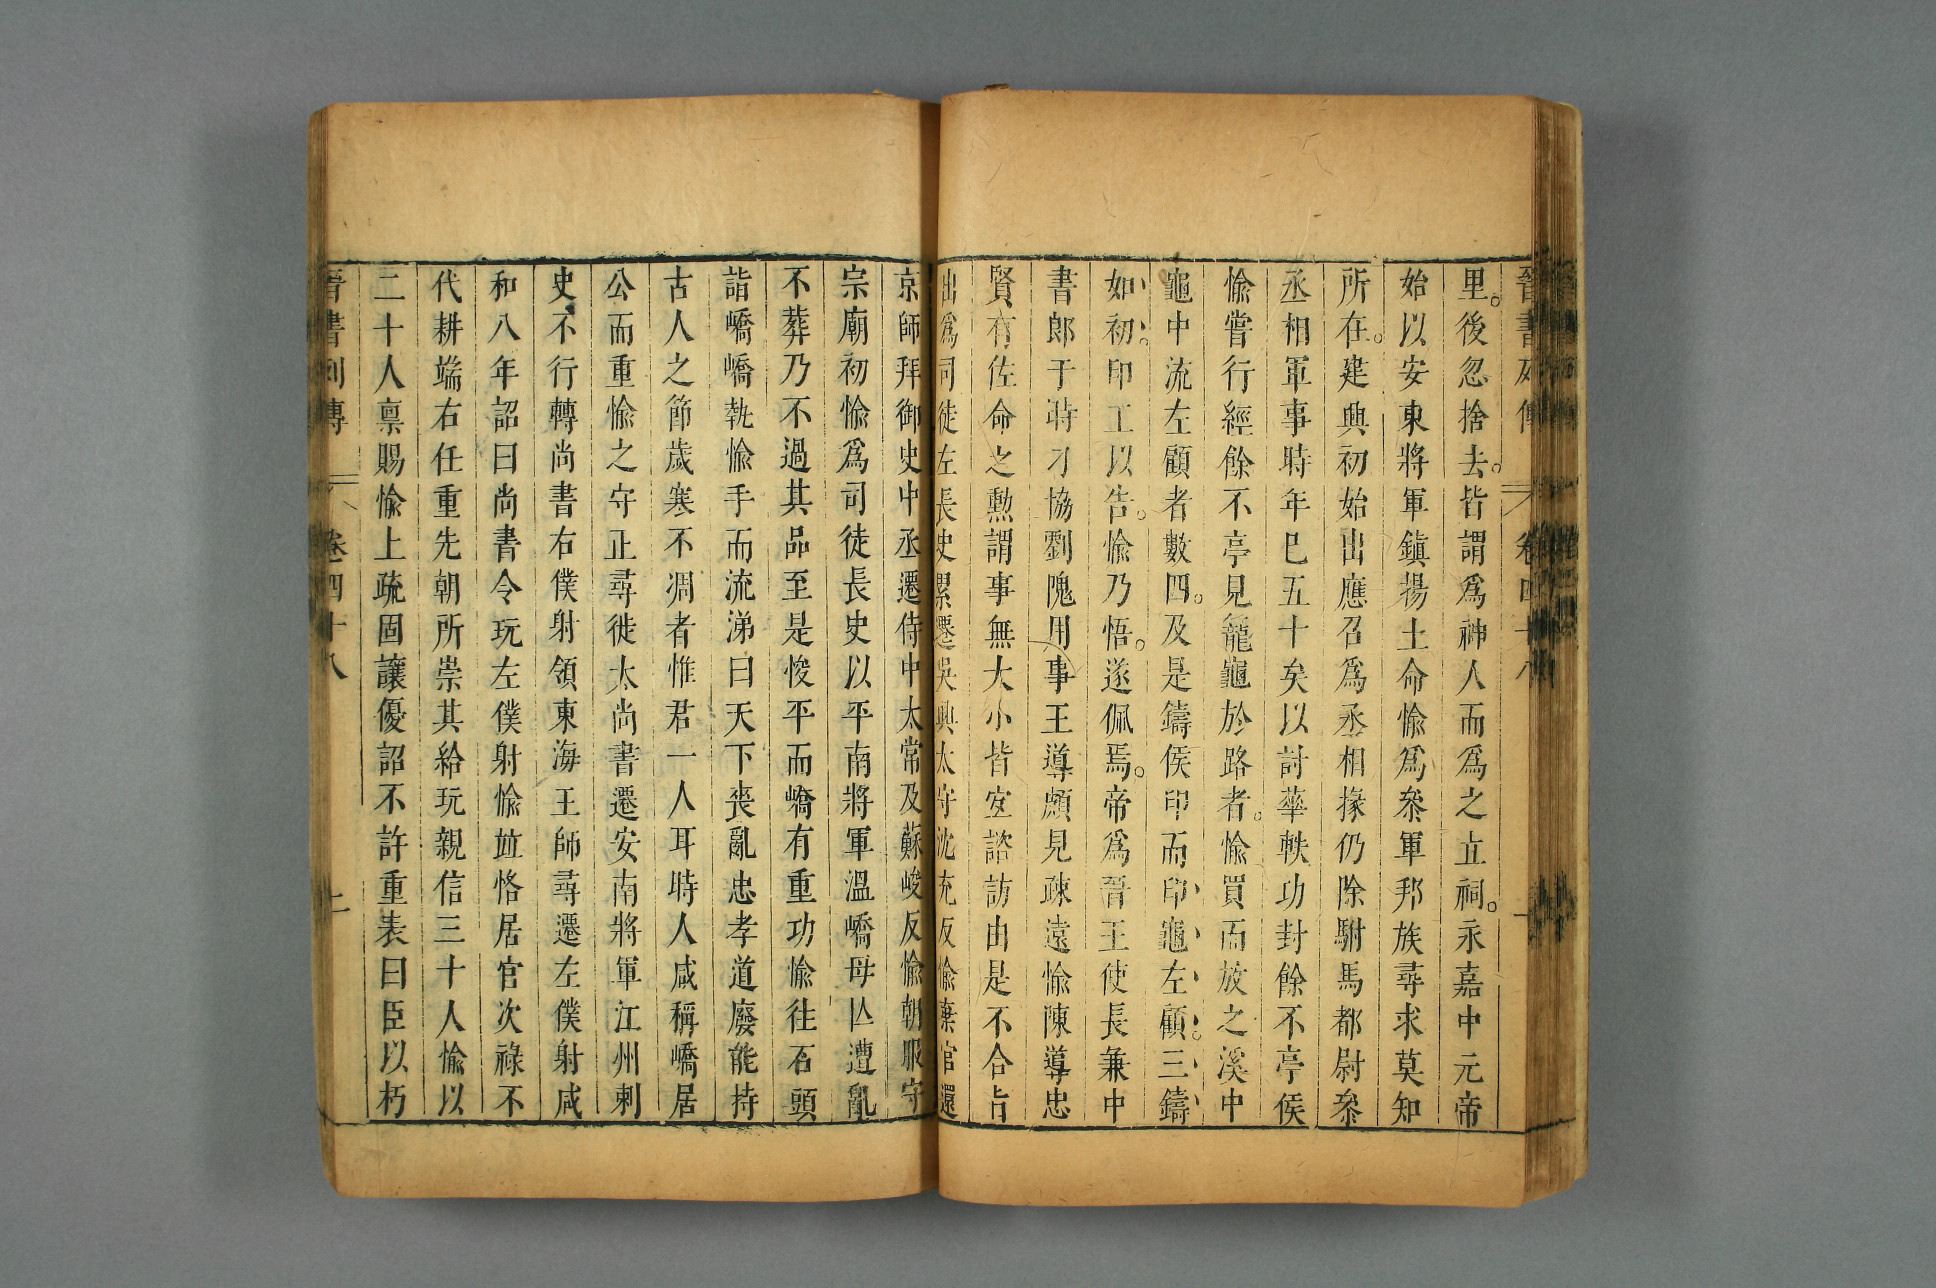 晉書列傳 卷四十八
里。後忽捨去。皆謂爲神人而爲之立祠。永嘉中元帝
始以安東將軍鎭揚土命愉爲叅軍邦族尋求莫知
所在。建興初始出應召爲丞相掾仍除駙馬都尉叅
丞相軍事時年已五十矣以討華軼功封餘不亭侯
愉嘗行經餘不亭見籠龜於路者。愉買而放之溪中
龜中流左顧者數四。及是鑄侯印而印龜左顧。三鑄
如初。印工以告。愉乃悟。遂佩焉。帝爲晉王使長兼中
書郎于時刁協劉隗用事王導頗見疎遠愉陳導忠
賢有佐命之勲謂事無大小皆宜諮訪由是不合旨
出爲司徒左長史累遷吳興太守沈充反愉棄官還
京師拜御史中丞遷侍中太常及蘇峻反愉朝服守
宗廟初愉爲司徒長史以平南將軍溫嶠母亾遭亂
不葬乃不過其品至是悛平而嶠有重功愉往石頭
詣嶠嶠執愉手而流涕曰天下喪亂忠孝道廢能持
古人之節歲寒不凋者惟君一人耳時人咸稱嶠居
公而重愉之守正尋徙太尚書遷安南將軍江州刺
史不行轉尚書右僕射領東海王師尋遷左僕射咸
和八年詔曰尚書令玩左僕射愉竝恪居官次祿不
代耕端右任重先朝所崇其給玩親信三十人愉以
二十人禀賜愉上疏固讓優詔不許重表曰臣以朽
晉書列傳 卷四十八